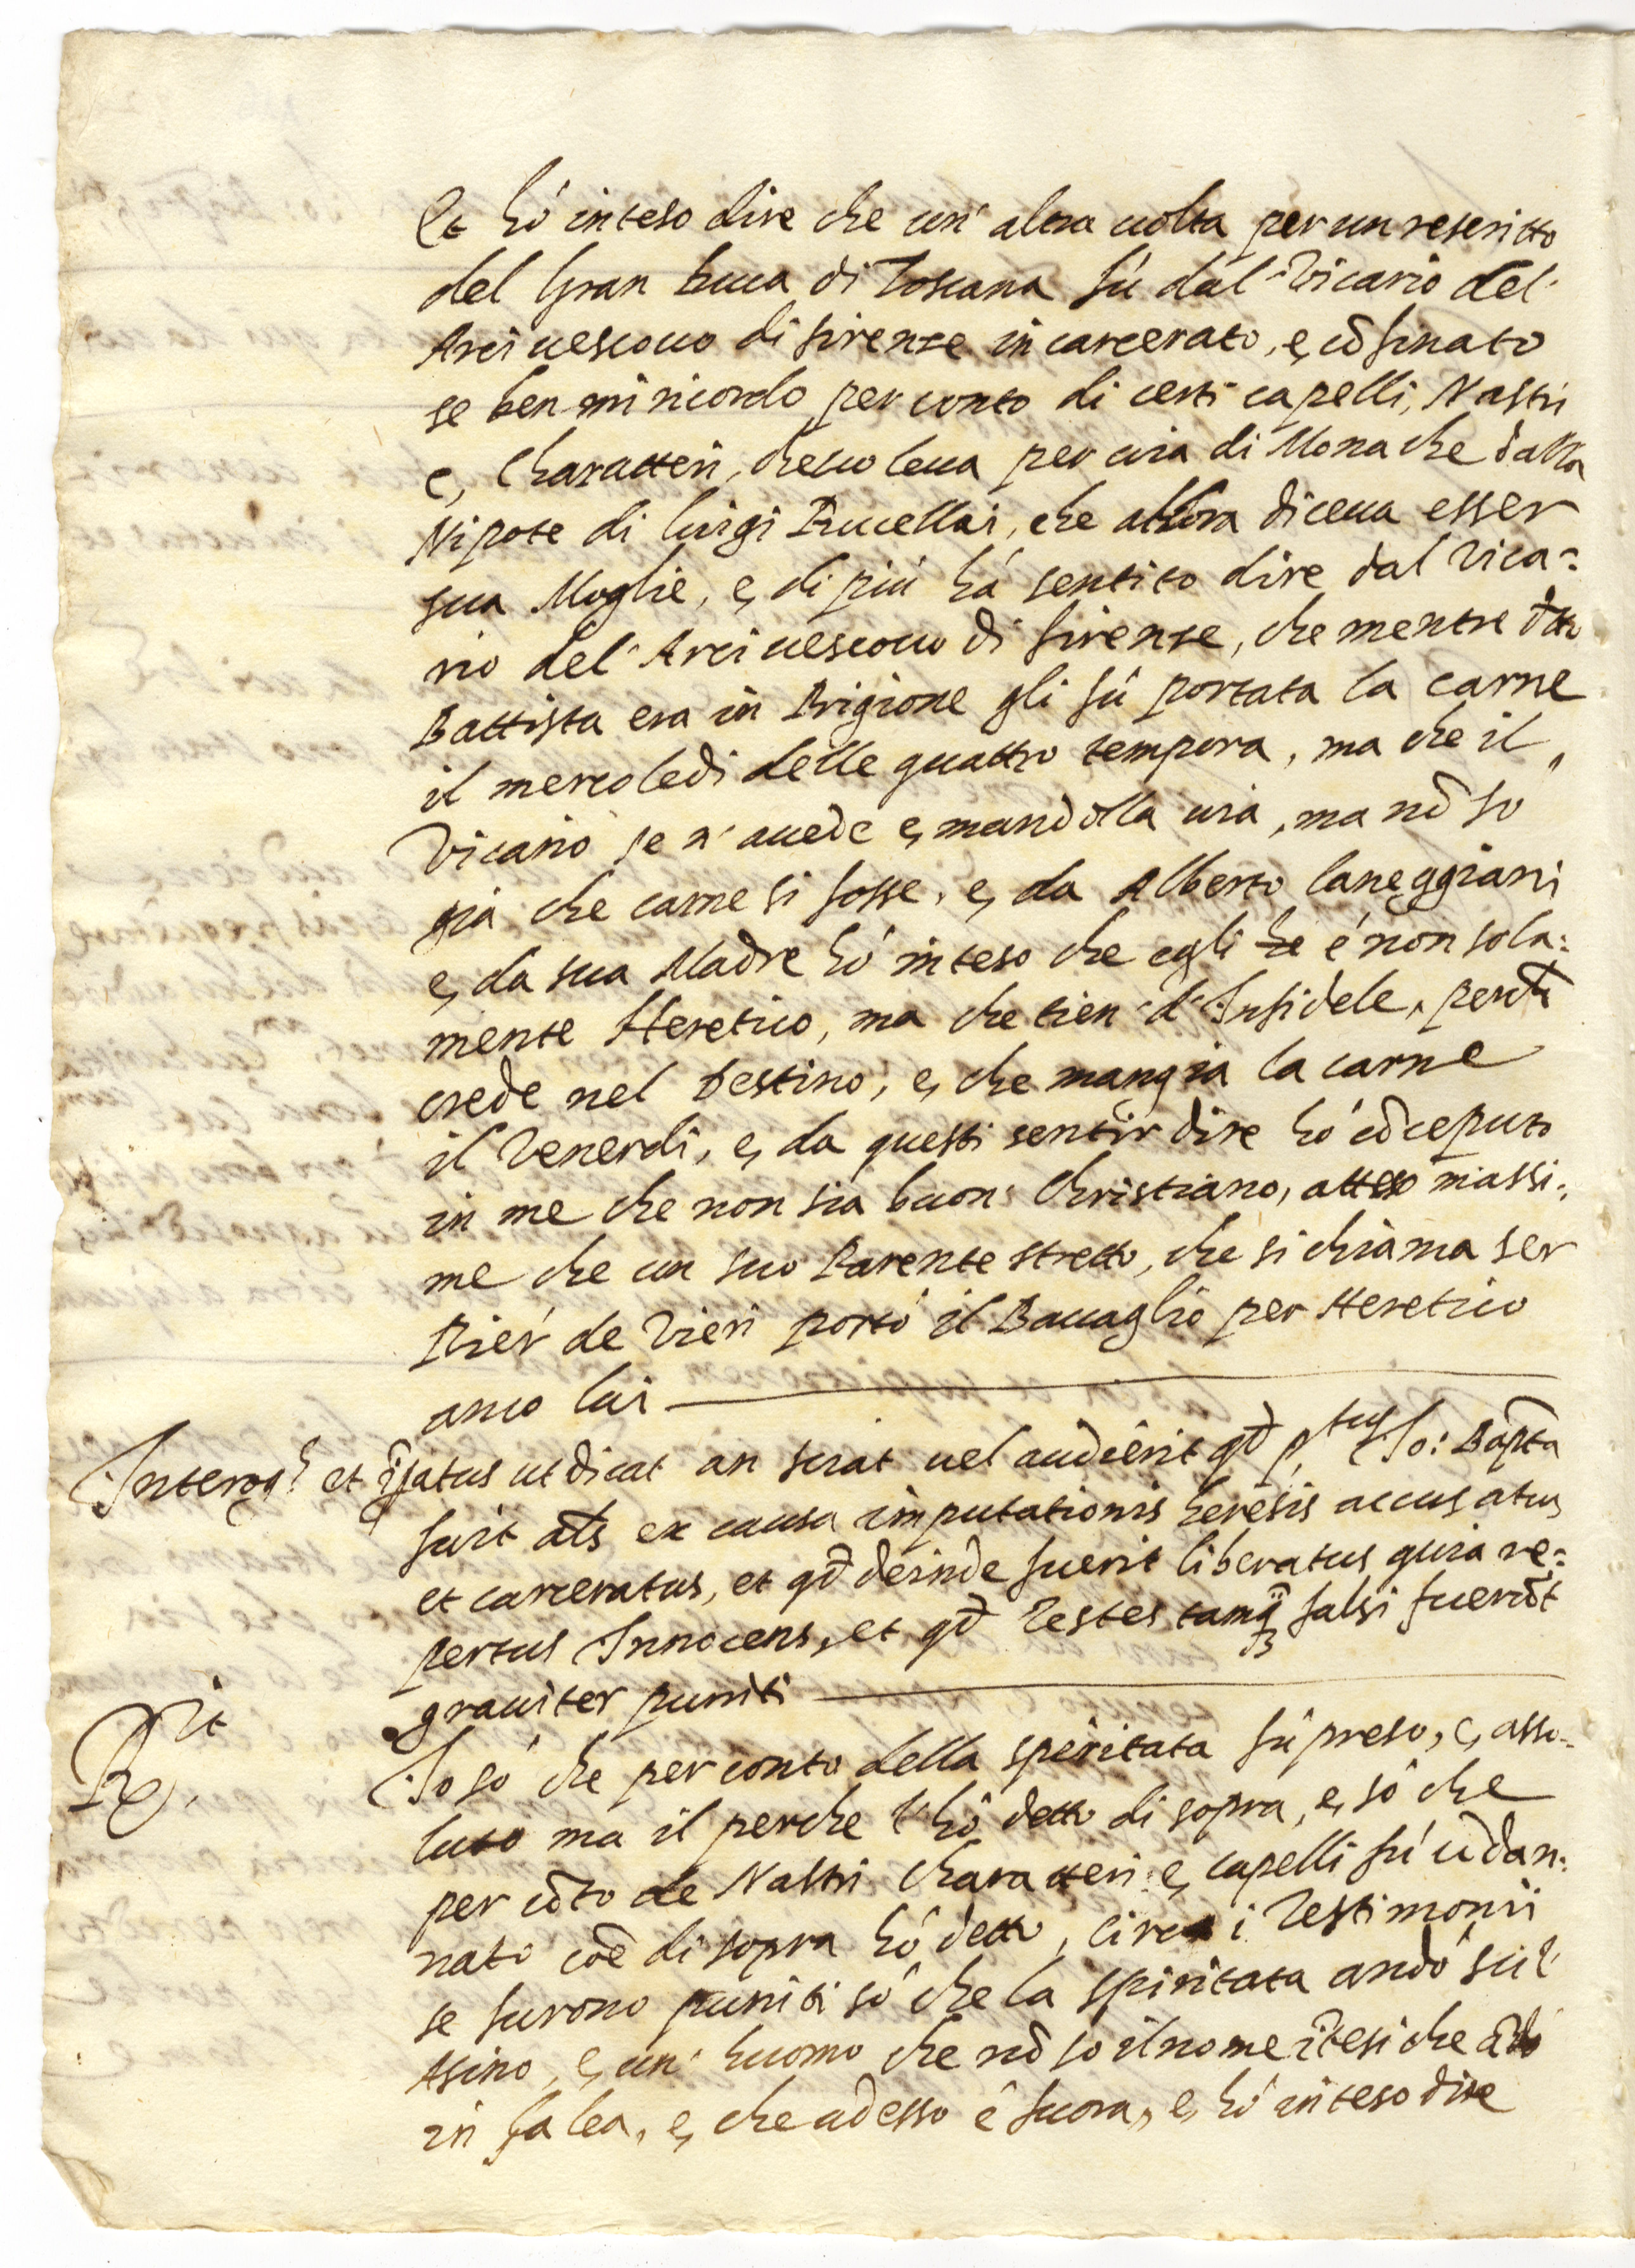 Et hó inteso dire che un' altra uolta per un rescritto
del Gran Duca di Toscana fú dal Vicario del'
Arciuescouo di firenze incarcerato, e, cõfinato
se ben mi ricordo per conto di certi capelli, Nastri
e, Charatteri, che uoleua per uia di Monache dalla
Nipote di luigi Rucellai, che allora diceua esser
sua Moglie, e, di piú há sentito dire dal Vica=
rio del' Arciuescouo di firenze, che mentre dtto
Battista era in Prigione gli fú portata la carne
il mercoledi delle quattro tempora, ma che il
Vicario se n' auede e, mandolla uia, ma nõ so
giá che carne si fosse, e, da Alberto Caneggiani
e, da sua Madre hó inteso che egli he é non sola=
mente Heretico, ma che tien d' Infidele, perche
crede nel Destino, e, che mangia la carne
il Venerdi, e, da questi sentir dire hó cõceputo
in me che non sia buon Christiano, atteso massi=
me che un suo Parente stretto, che si chiama ser
Pier de Vieri portó il Bauaglio per Heretico
anco lui
Interog.s et ꝗsatus ut dicat an sciat uel audierit qđ p.tus Io: Bapta
fuit als ex causa imputationis heresis accusatus
et carceratus, et qđ deinde fuerit liberatus quia re=
pertus Innocens, et qđ Testes tamq̃ falsi fuerõt
grauiter puniti
R.it Io só che per conto della spiritata fú preso, e, asso=
luto ma il perche l' hó detto di sopra, e, só che
per cõto de Nastri Charatteri e, capelli fú cõdan=
nato coẽ di sopra hó detto, circa i Testimonii
se furono puniti só che la spiritata andó sul'
Asino, e, un' huomo che nõ so il nome ĩtesi che ãdo
in Galea, e, che adesso é fuora, e, hó inteso dire